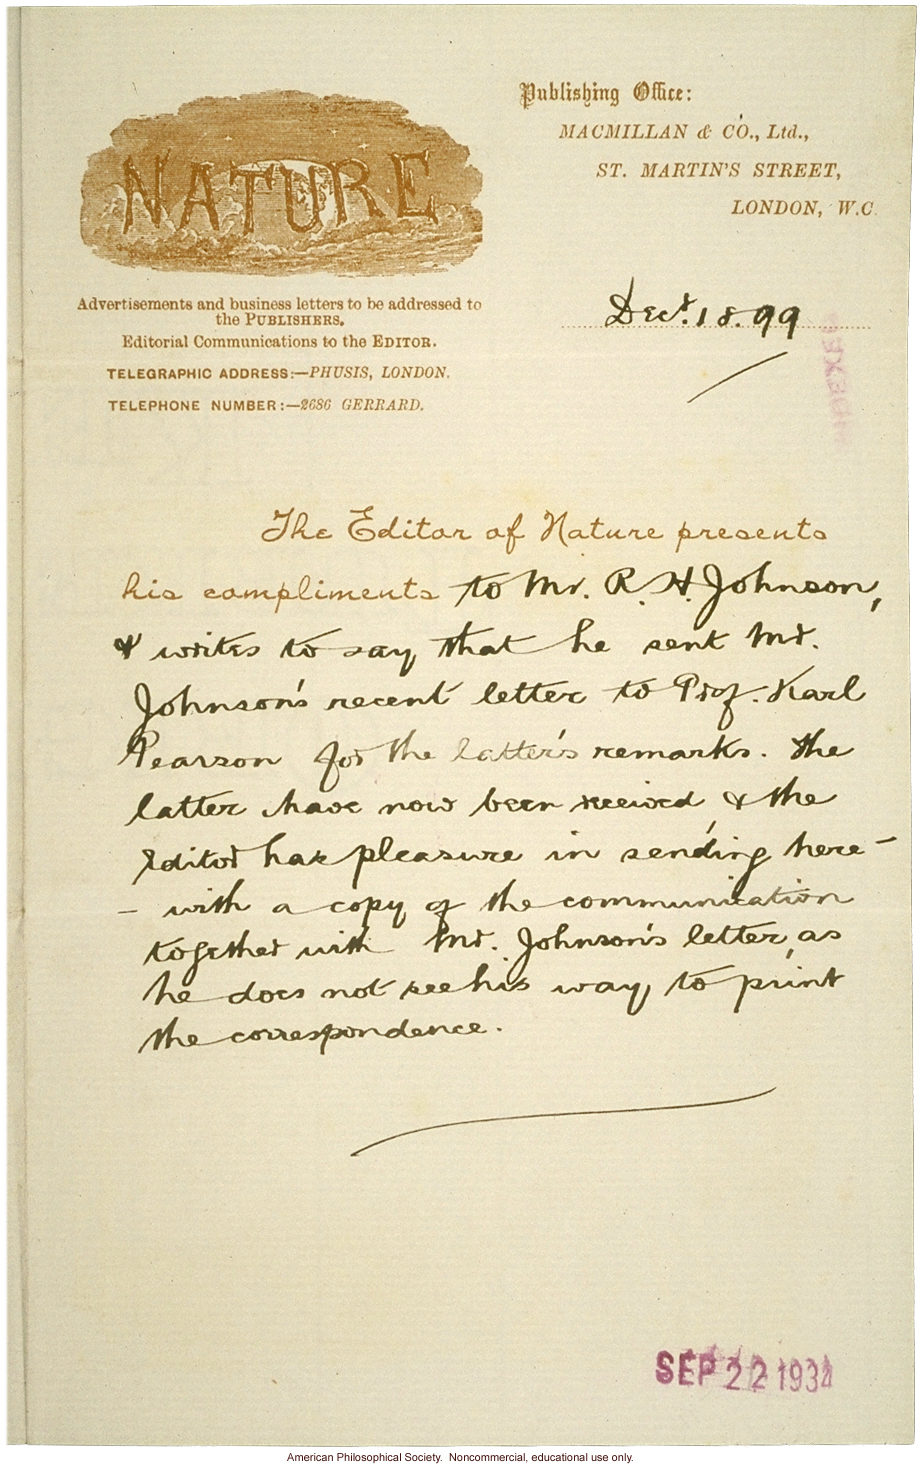 NATURE
Publishing Office:
MACMILLAN & CO., Ltd.,
ST. MARTIN'S STREET,
LONDON, W.C.
Advertisements and business letters to be addressed to
the PUBLISHERS.
Editorial Communications to the EDITOR.
TELEGRAPHIC ADDRESS:—PHUSIS, LONDON.
TELEPHONE NUMBER:—2686 GERRARD.
Decr. 18. 99
INDEXED
The Editor of Nature presents
his compliments to Mr. R. H. Johnson,
& writes to say that he sent Mr.
Johnson's recent letter to Prof. Karl
Pearson for the latter's remarks. The
latter have now been received & the
Editor has pleasure in sending here-
- with a copy of the communication
together with Mr. Johnson's letter, as
he does not see his way to print
the correspondence.
SEP 22 1934
American Philosophical Society. Noncommercial, educational use only.